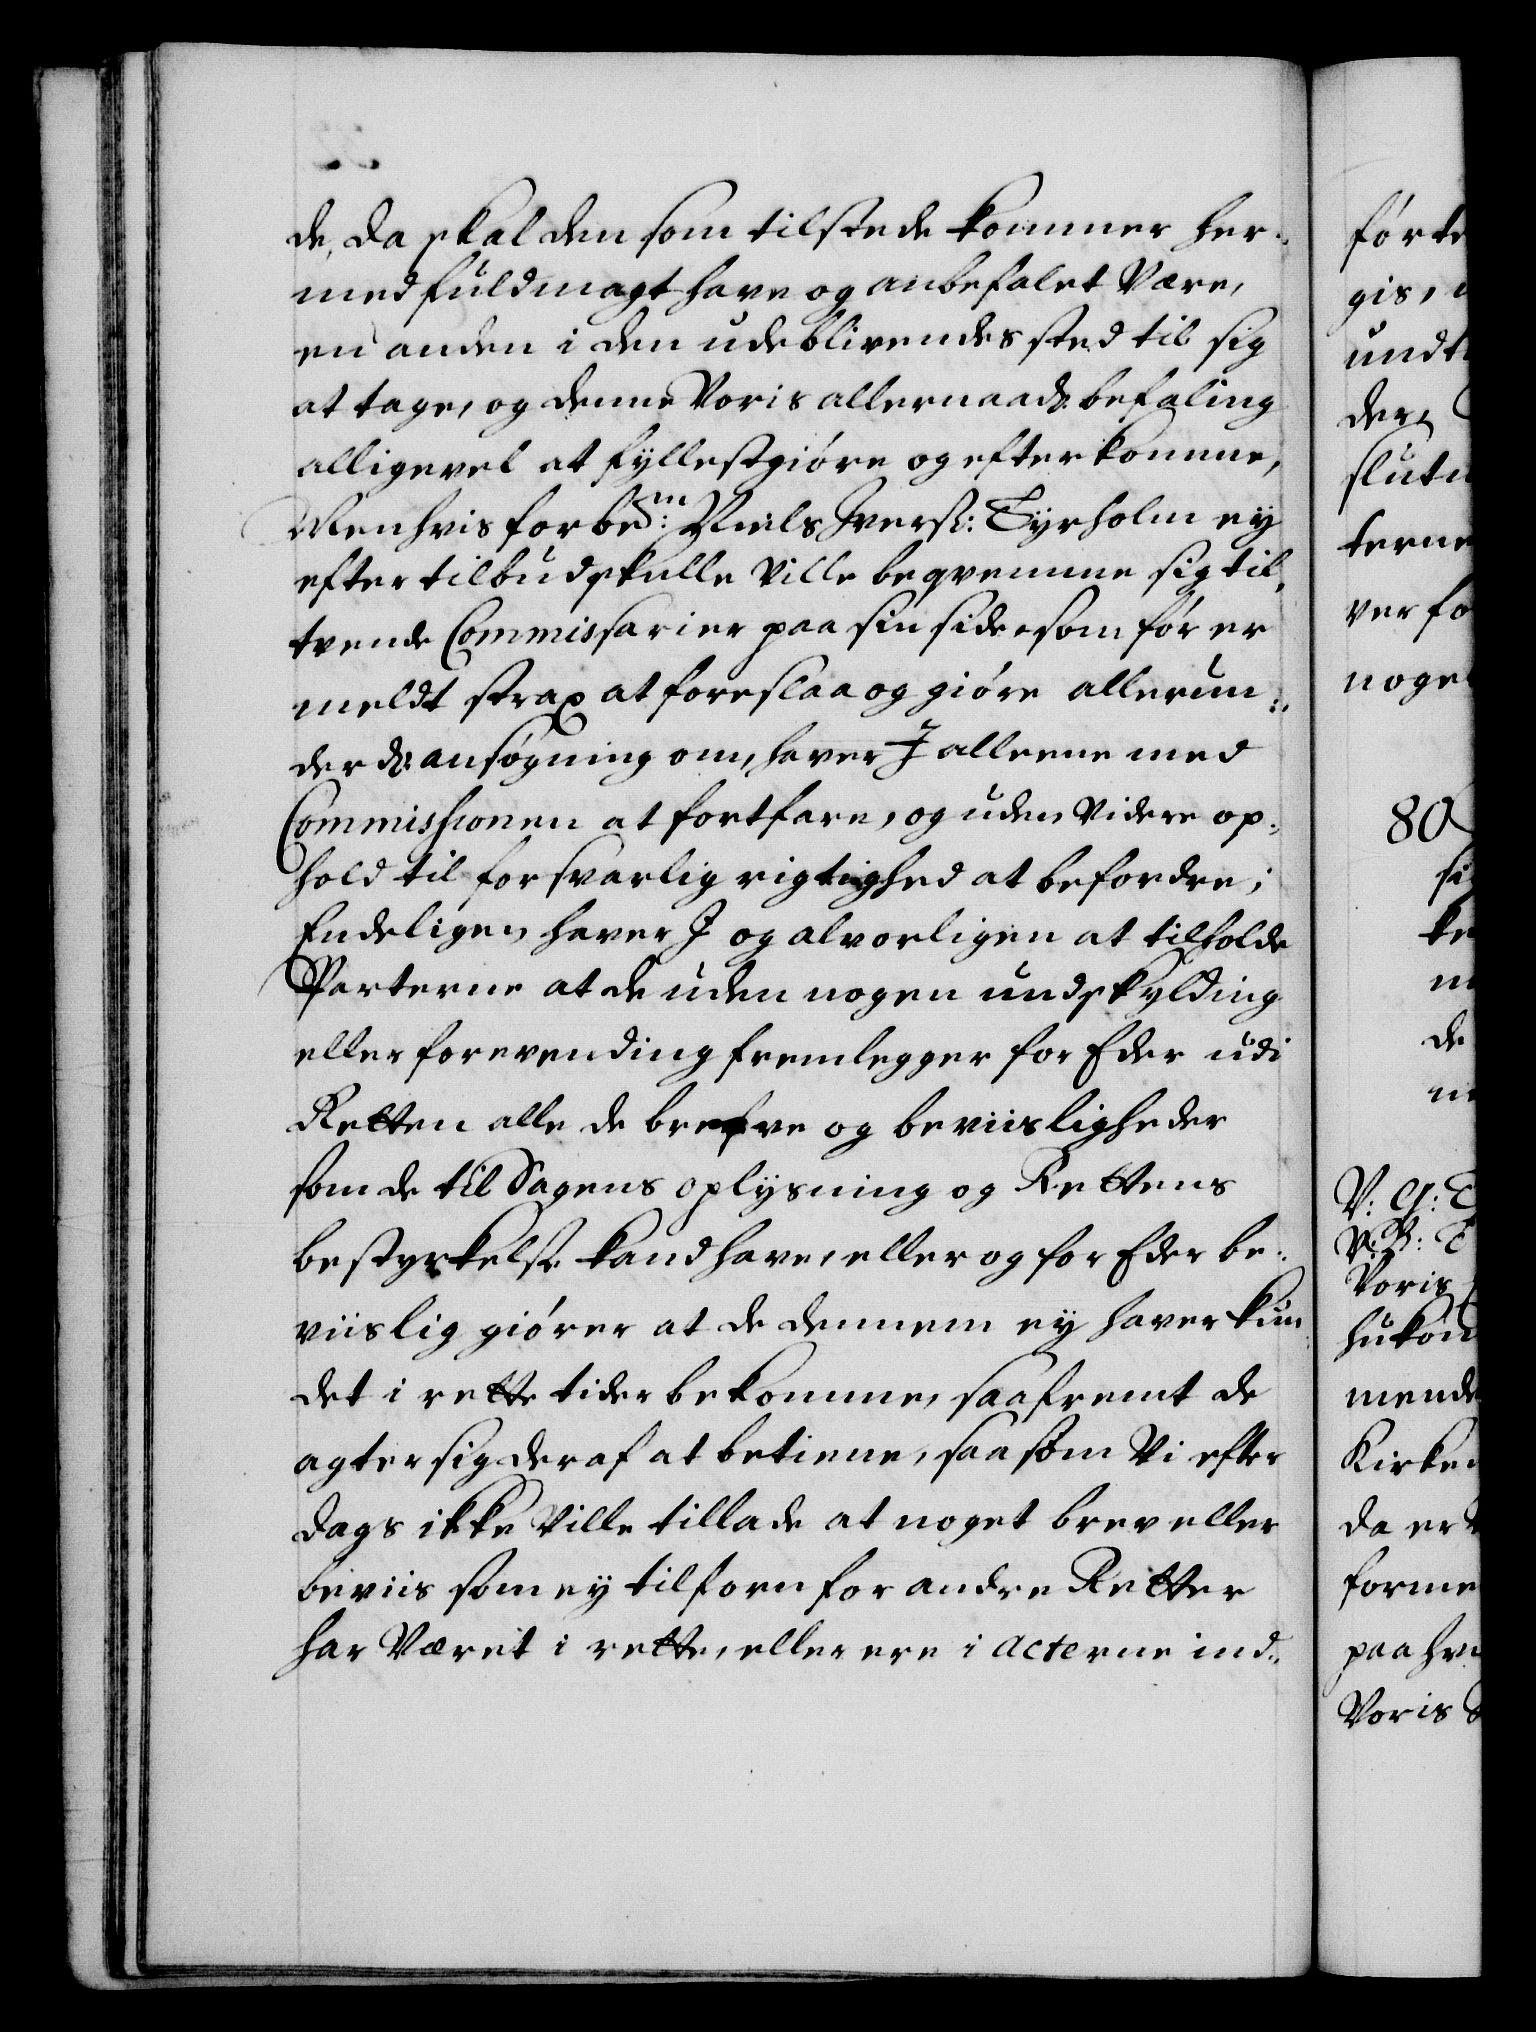 de, da skal den som tilstede kommer her-
med fuldmagt have og anbefalet Være,
en anden i den udeblivendes sted til sig
at tage, og denne Voris allernaads: befaling
alligevel at fyllestgiøre og efterkomme,
Men hvis forbem:te Niels Iversø: Tyrholm ey
efter tilbud skulle Ville beqvemme sig til,
tvende Commissarier paa sin side, som før er
meldt strax at foreslaa og giøre allerun-
derds: ansøgning om, haver I alleene med
Commissionen at fortfare, og uden Videre op-
hold til forsvarlig rigtighed at befordre;
Endeligen haver I og alvorligen at tilholde
Parterne at de uden nogen undskylding
eller forevending fremlegger for Eder udi
Retten alle de brefve og beviisligheder
som de til Sagens oplysning og Rettens
bestyrkelse kand have, eller og for Eder be-
viislig giører at de dennem ey haver kun
det i rette tider bekomme, saafremt de
agter sig deraf at betiene, saasom Vi efter
dags ikke Ville tillade at noget brev eller
beviis som ey tilforn for andre Retter
har Været i rette, eller ere i Acterne ind-
førte
gis,
undt
der
slutn
terne
ver fo
noge
80
si
ke
de
V: G: T
Voris
hukom
mende
Kirken
da er
forme
paa hv
Voris